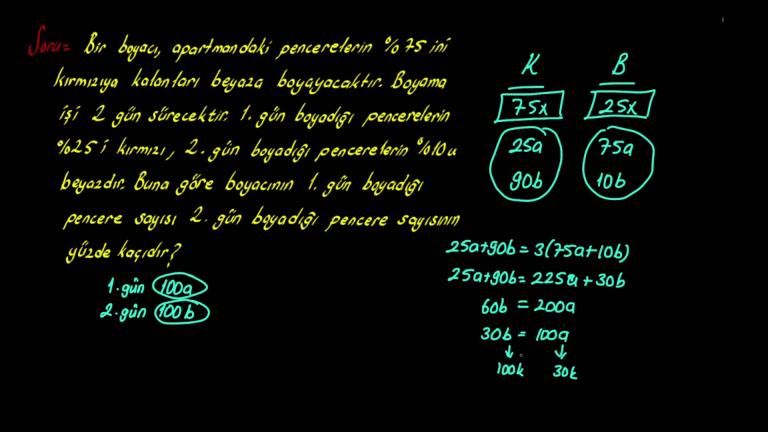 Soru= Bir boyacı, apartmandaki pencerelerin %75 ini
kırmızıya kalanları beyaza boyayacaktır. Boyama
işi 2 gün sürecektir. 1. gün boyadığı pencerelerin
%25 i kırmızı, 2. gün boyadığı pencerelerin %10 u
beyazdır. Buna göre boyacının 1. gün boyadığı
pencere sayısı 2. gün boyadığı pencere sayısının
yüzde kaçıdır?
1. gün 100a
2. gün 100b
K B
75x 25x
25a 75a
90b 10b
25a+90b = 3(75a+10b)
25a+90b = 225a+30b
60b = 200a
30b = 100a
↓ ↓
100k 30k